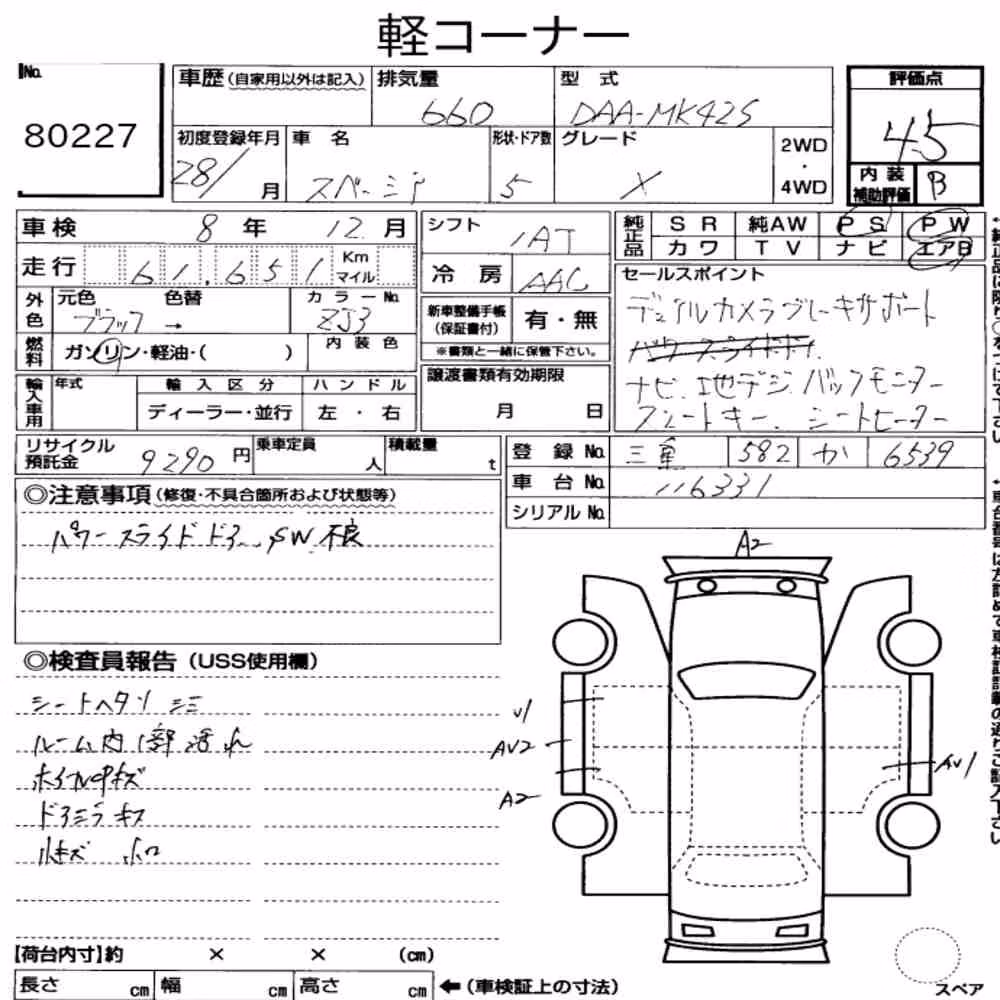 軽コーナー
No.
80227
車歴(自家用以外は記入)
排気量
660
型 式
DAA-MK42S
評価点
4.5
内装補助評価
B
初度登録年月
28/ 月
車 名
スペーシア
形状・ドア数
5
グレード
X
2WD
・
4WD
車検 8 年 12 月
走行 61,651 Km マイル
外色
元色 色替
ブラック →
カラーNo.
ZJ3
燃料
ガソリン・軽油・( )
内装色
輸入車用
年式
輸入区分
ディーラー・並行
ハンドル
左 ・ 右
シフト
IAT
冷 房
AAC
新車整備手帳
(保証書付)
有・無
※書類と一緒に保管下さい。
譲渡書類有効期限
月 日
純正品
S R 純AW P S P W
カワ T V ナビ エアB
セールスポイント
デュアルカメラブレーキサポート
パワースライドドア
ナビ、地デジ バックモニター
スマートキー、シートヒーター
リサイクル
預託金
9290 円
乗車定員
人
積載量
t
登 録 No. 三重 582 か 6539
車 台 No. 116331
シリアル No.
◎注意事項(修復・不具合箇所および状態等)
パワースライドドア SW 不良
◎検査員報告(USS使用欄)
シートヘタリ シミ
ルーム内 1部 汚れ
ホイルキズ
ドアミラ キズ
A2
AV2
A2
AV1
【荷台内寸】約 × × (cm)
長さ cm 幅 cm 高さ cm ←(車検証上の寸法)
スペア